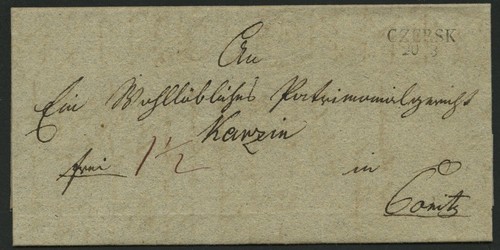 CZERSK
20 3
An
Ein Wohllöbliches Patrimonialgericht
Karzin
frei 1 1/2 in
Conitz